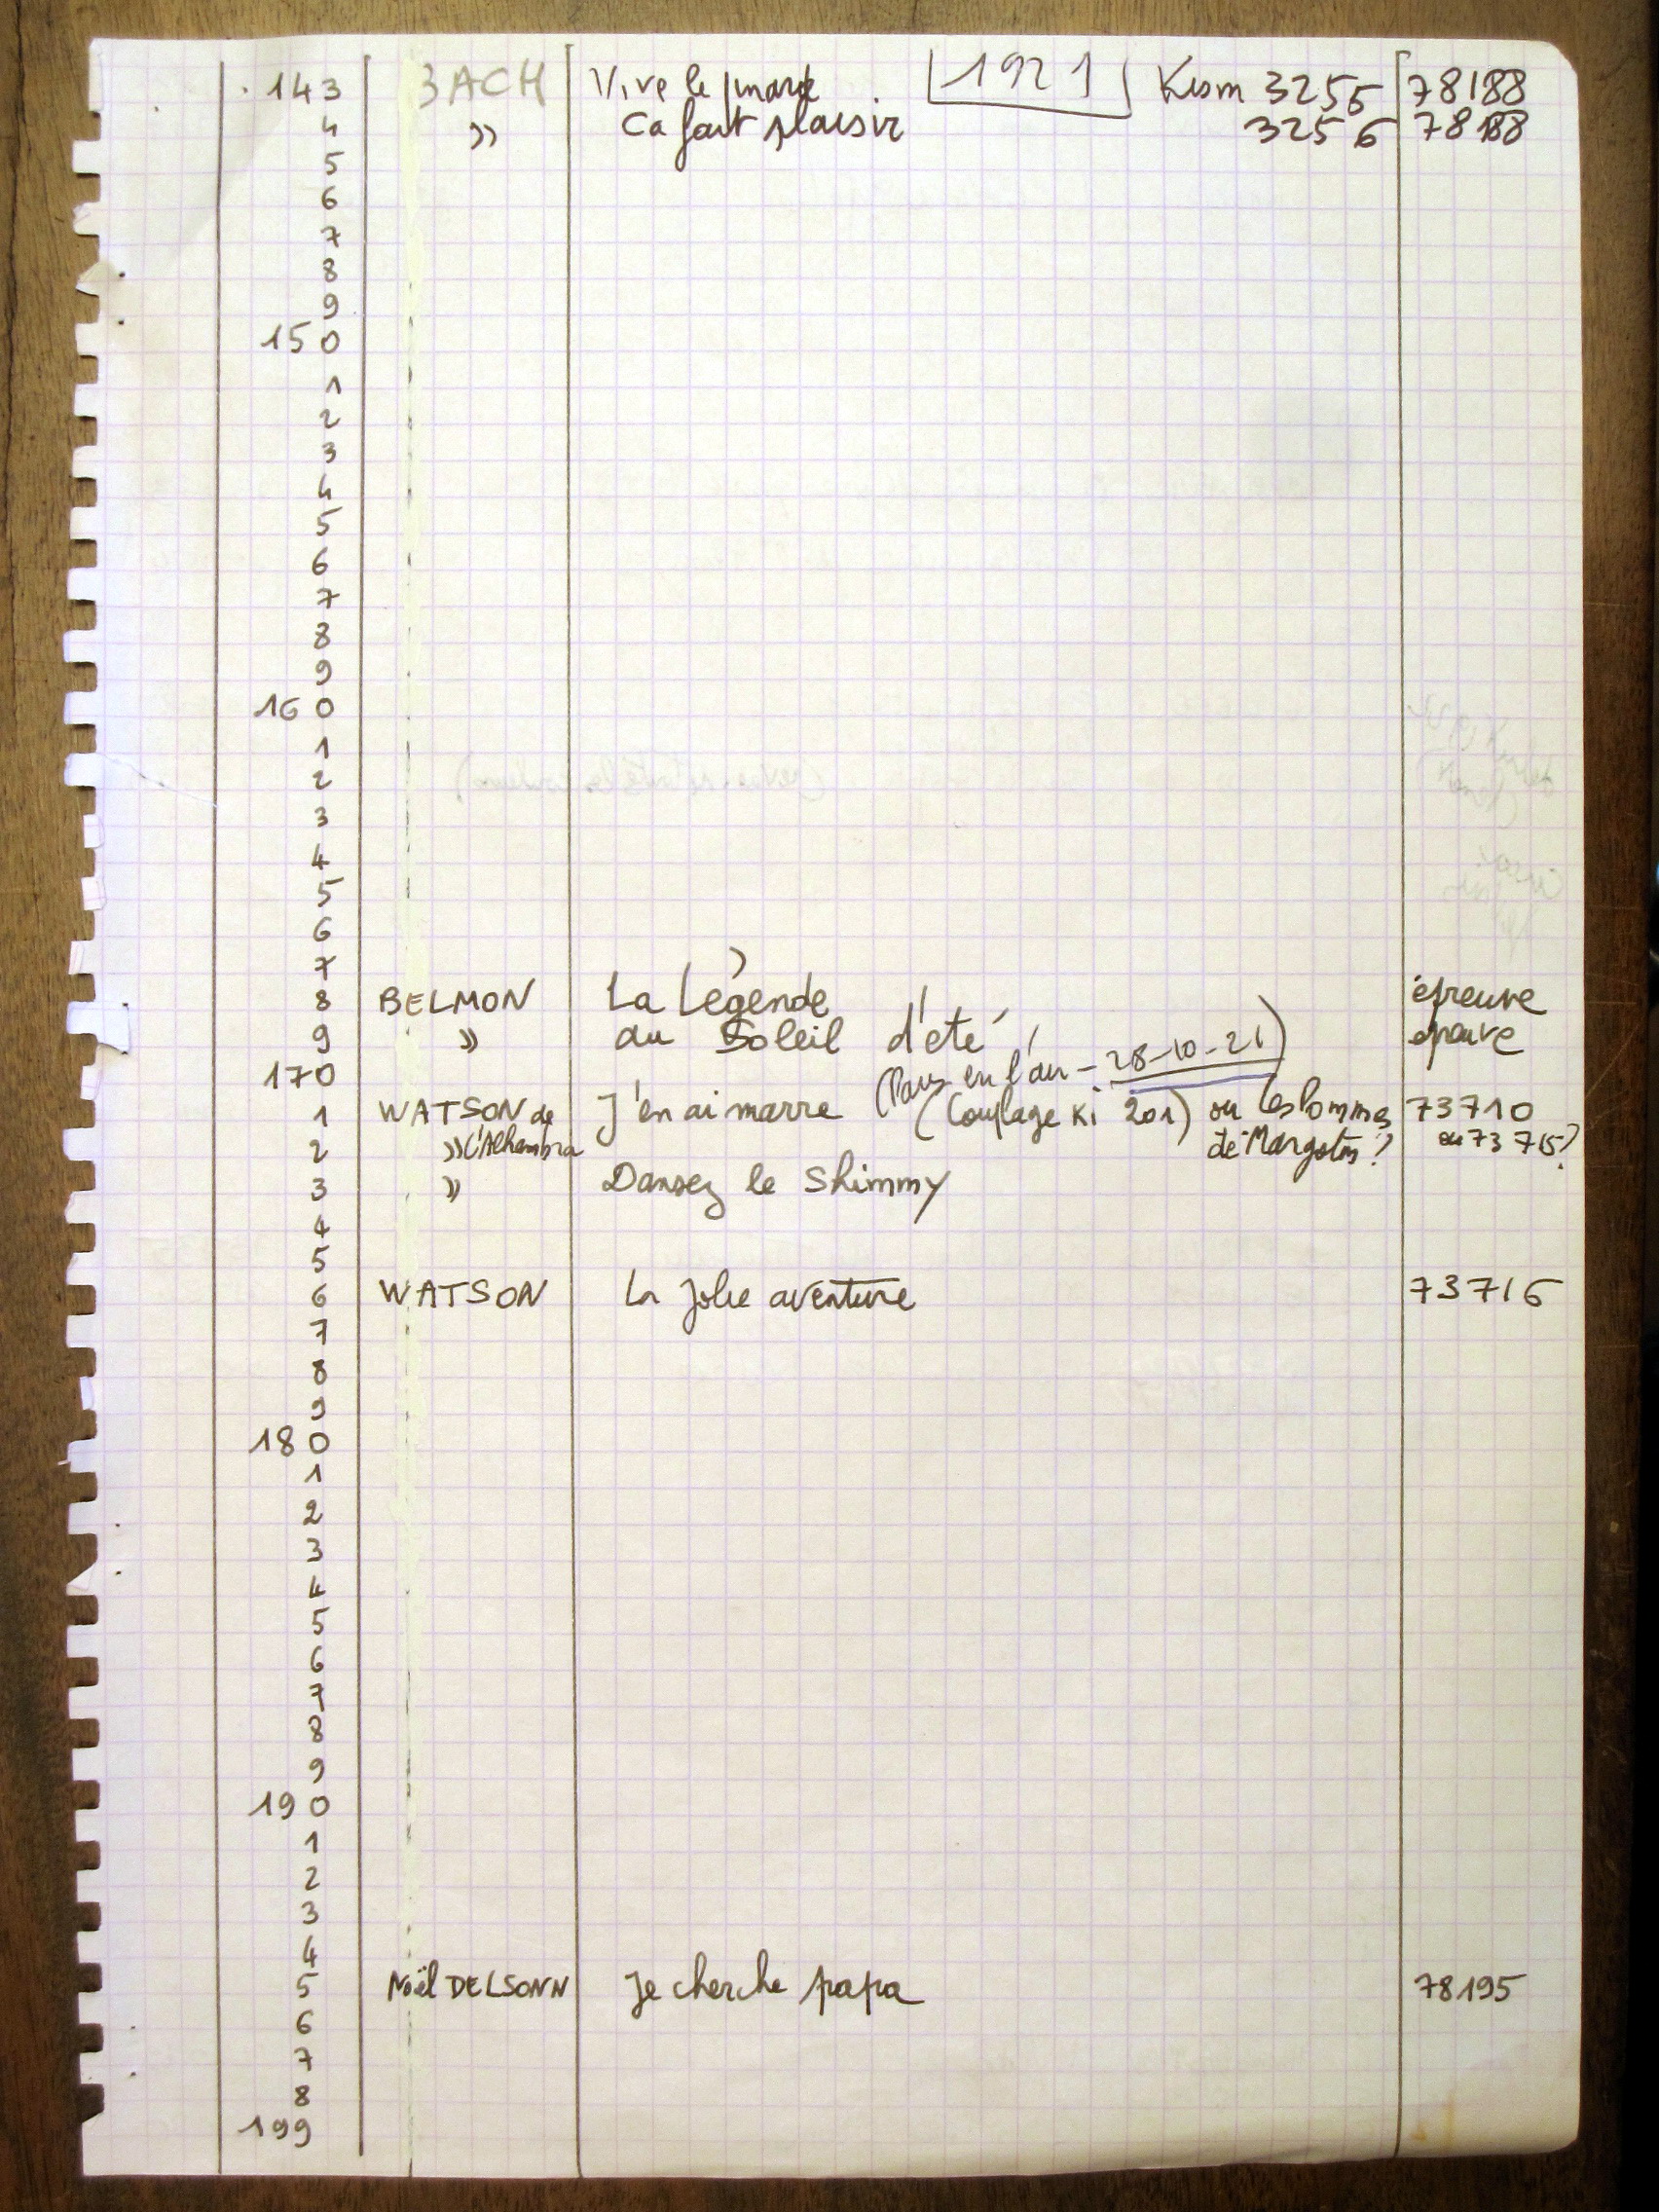 143 BACH Vive le pinard 1921 Kism 3255 78188
4 » Ca fait plaisir 3256 78188
5
6
7
8
9
150
1
2
3
4
5
6
7
8
9
160
1
2
3
4
5
6
7
8 BELMON La Légende épreuve
9 » du Soleil d'été épreuve
170 (Paris en l'air - 28-10-21)
1 WATSON de J'en ai marre (Couplage Ki 201) ou les Pommes 73710
2 » l'Alhambra de Margoton? ou 73715?
3 » Dansez le Shimmy
4
5
6 WATSON La Jolie aventure 73716
7
8
9
180
1
2
3
4
5
6
7
8
9
190
1
2
3
4
5 Noël DELSONN Je cherche papa 78195
6
7
8
199